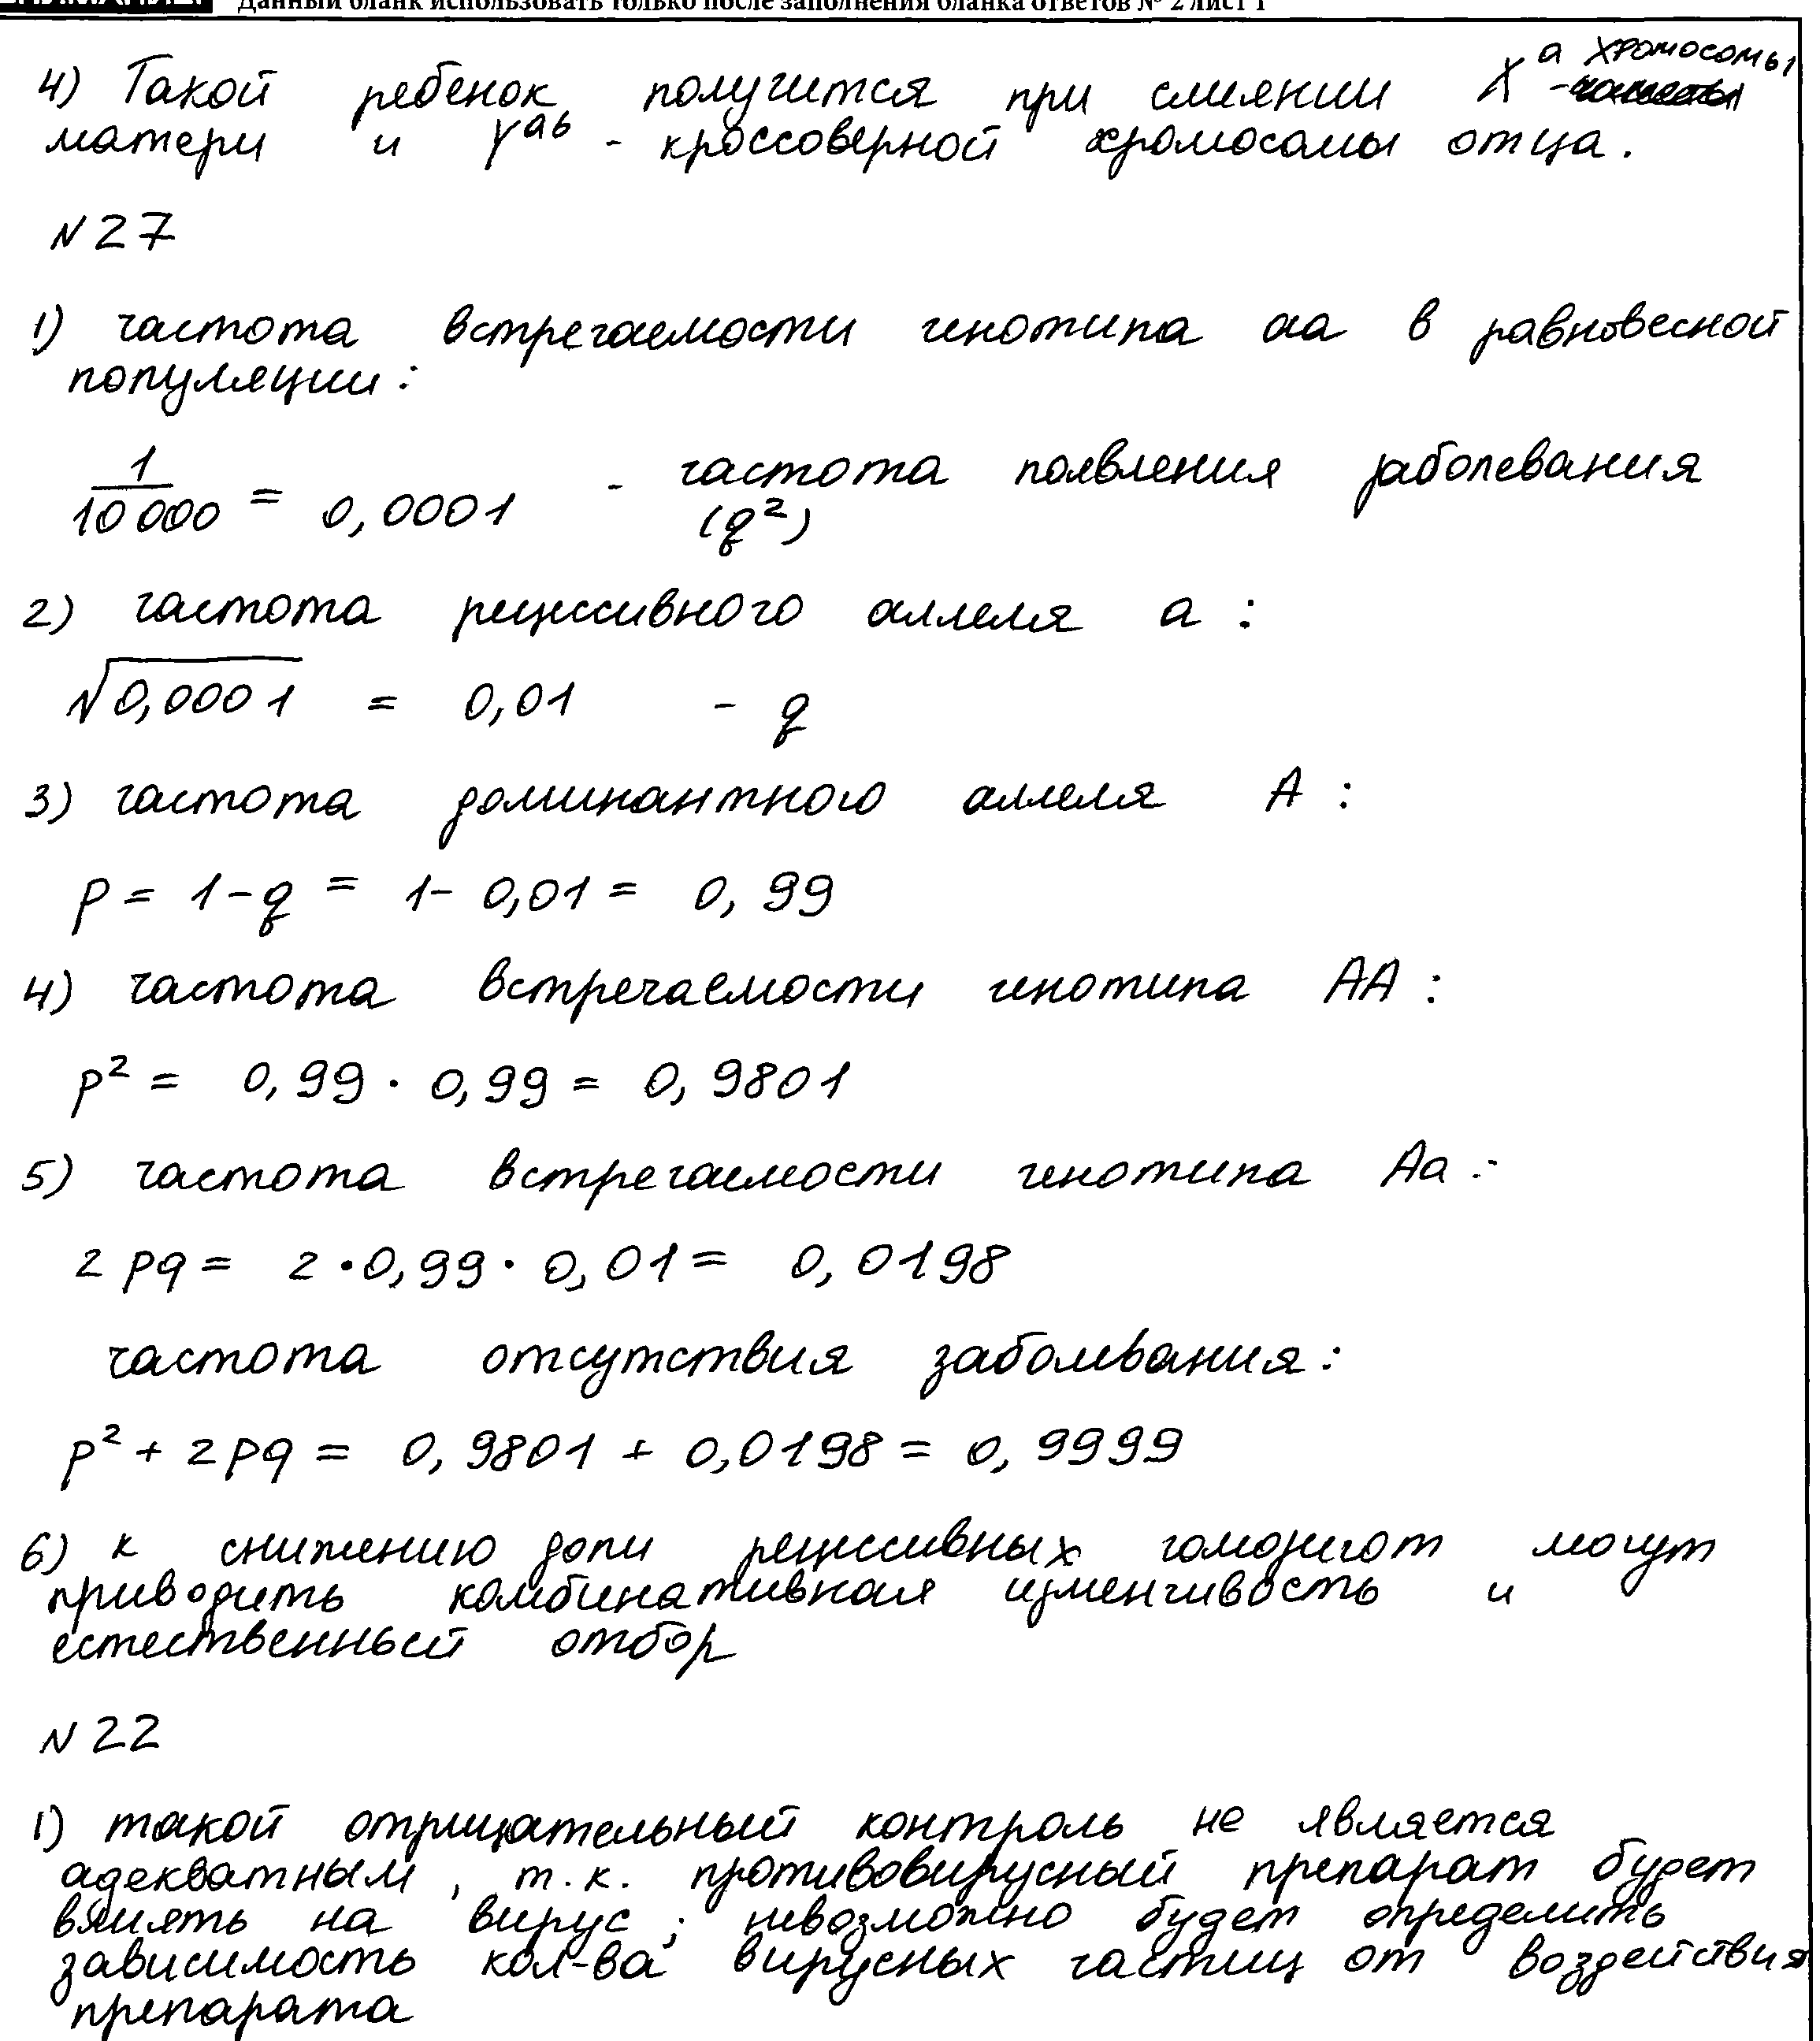 Данный бланк использовать только после заполнения бланка ответов № 2 лист 1
4) Такой ребенок получится при слиянии Xᵃ хромосомы
матери и Yᵃᵇ - кроссоверной хромосомы отца.
N 27
1) частота встречаемости генотипа аа в равновесной
популяции:
1/10 000 = 0,0001 - частота появления заболевания
(q²)
2) частота рецессивного аллеля а :
√0,0001 = 0,01 - q
3) частота доминантного аллеля А :
p = 1-q = 1- 0,01 = 0, 99
4) частота встречаемости генотипа АА :
p² = 0,99 · 0,99 = 0, 9801
5) частота встречаемости генотипа Аа :
2 pq = 2 · 0,99 · 0,01 = 0,0198
частота отсутствия заболевания:
p² + 2pq = 0, 9801 + 0,0198 = 0, 9999
6) к снижению доли рецессивных гомозигот могут
приводить комбинативная изменчивость и
естественный отбор
N 22
1) такой отрицательный контроль не является
адекватным, т.к. противовирусный препарат будет
влиять на вирус ; невозможно будет определить
зависимость кол-ва вирусных частиц от воздействия
препарата